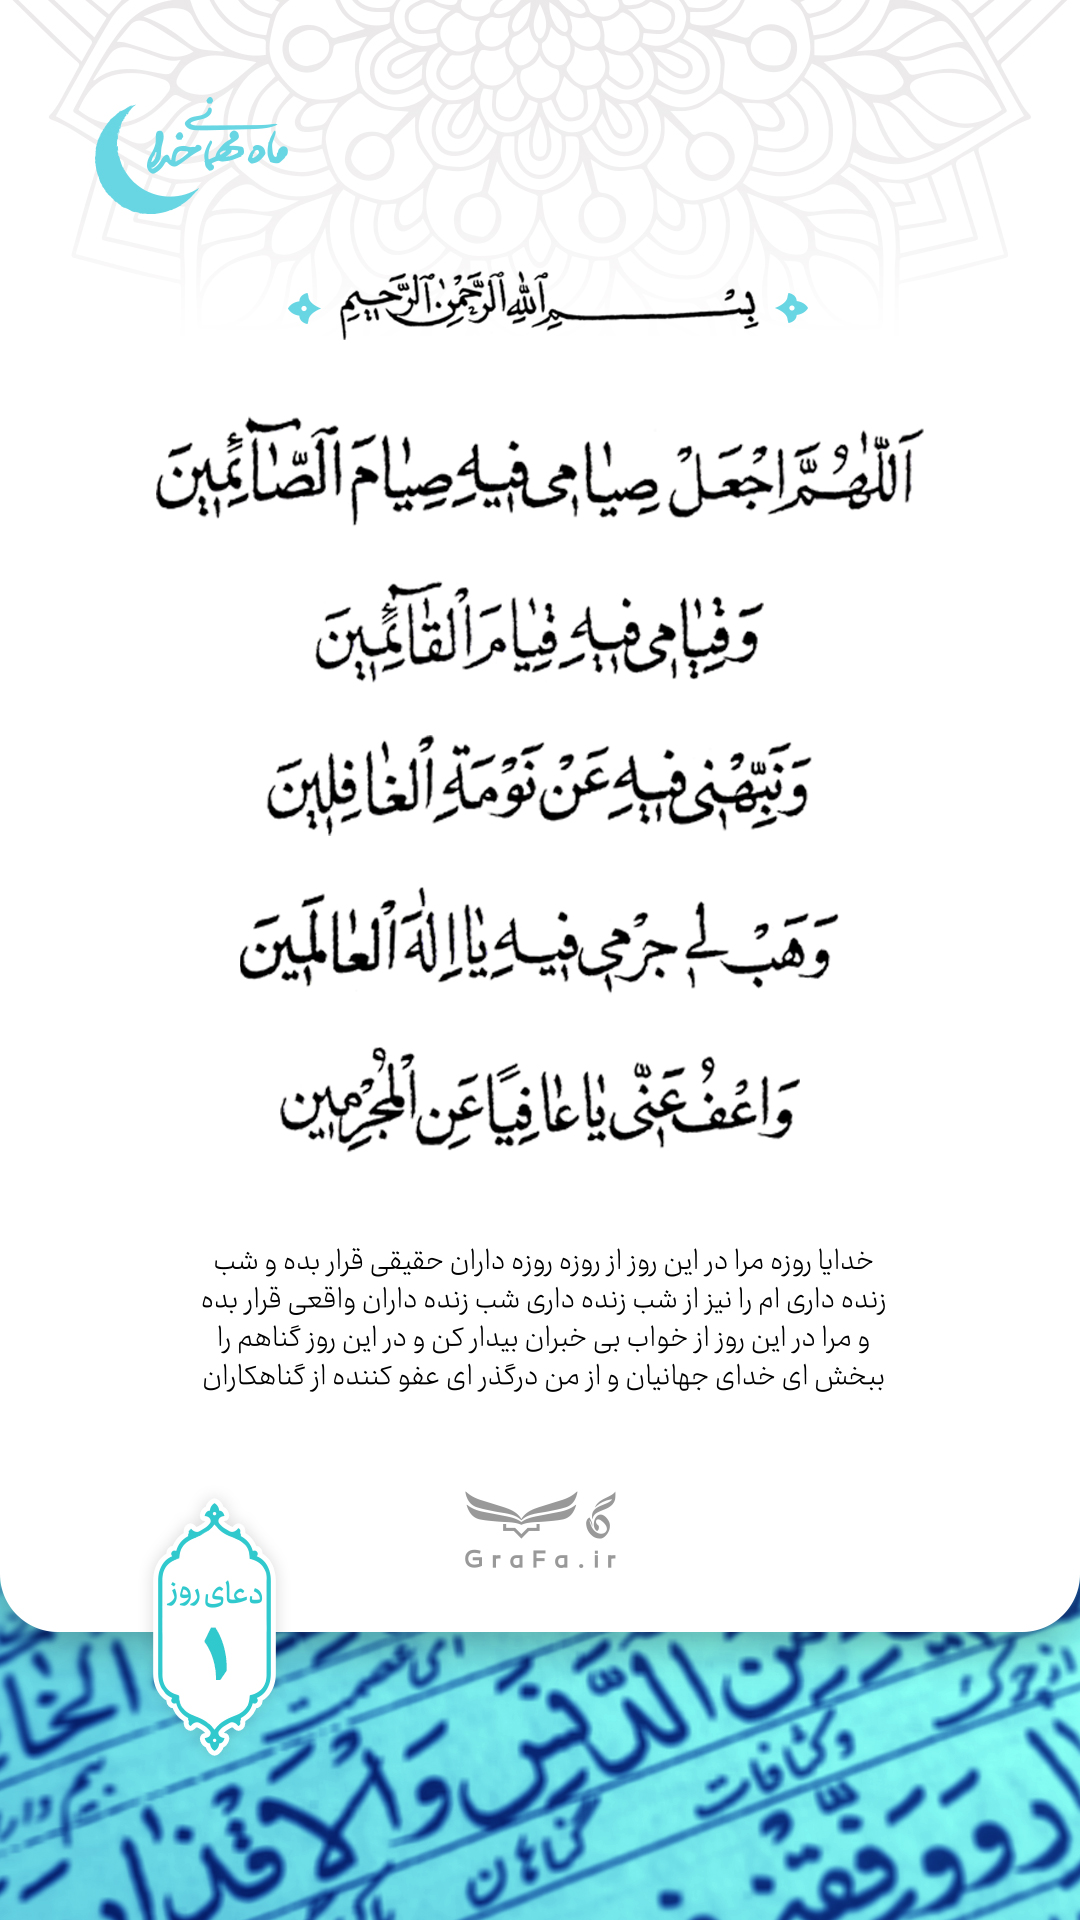 ماه مهمانی خدا
بِسْمِ ٱللّٰهِ ٱلرَّحْمٰنِ ٱلرَّحِيمِ
اَللّٰهُمَّ اجْعَلْ صِيٰامي فيهِ صِيٰامَ ٱلصّٰٓائِمينَ
وَ قِيٰامي فيهِ قِيٰامَ ٱلْقٰٓائِمينَ
وَ نَبِّهْني فيهِ عَنْ نَوْمَةِ ٱلْغٰافِلينَ
وَ هَبْ لي جُرْمي فيهِ يٰا اِلٰهَ ٱلْعٰالَمينَ
وَ اعْفُ عَنّي يٰا عٰافِيًا عَنِ ٱلْمُجْرِمينَ
خدایا روزه مرا در این روز از روزه روزه داران حقیقی قرار بده و شب
زنده داری ام را نیز از شب زنده داری شب زنده داران واقعی قرار بده
و مرا در این روز از خواب بی خبران بیدار کن و در این روز گناهم را
ببخش ای خدای جهانیان و از من درگذر ای عفو کننده از گناهکاران
GraFa.ir
دعای روز
۱
ای عصمت
الدَّنَسِ وَالْاَقْذٰارِ
از چرک
و کثافات
گناهان